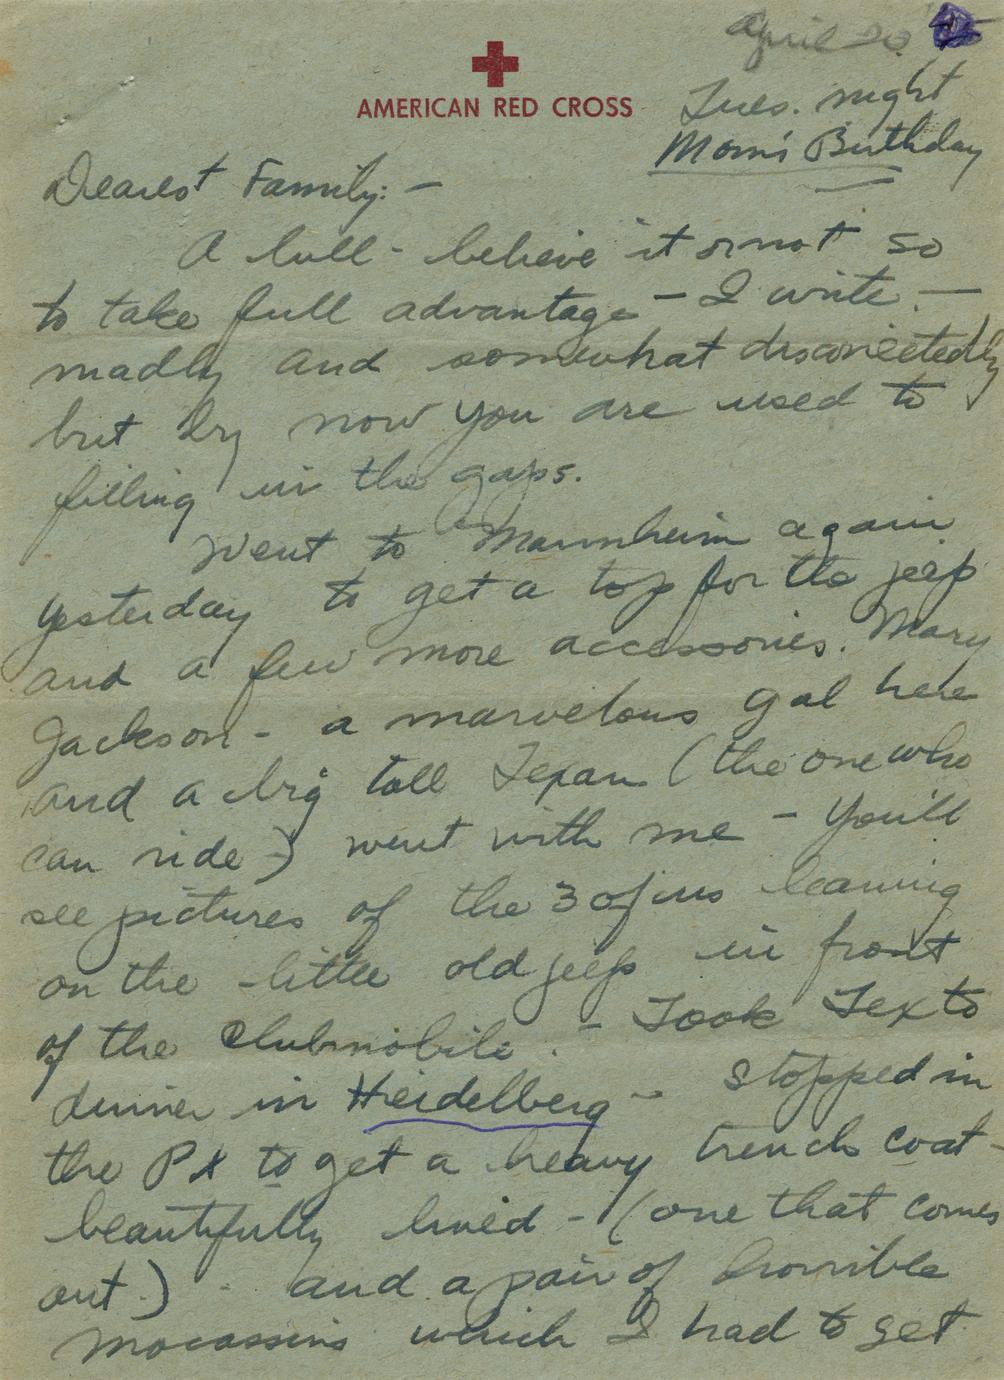 April 20
AMERICAN RED CROSS
Tues. night
Mom's Birthday
Dearest Family: —
A lull - believe it or not so
to take full advantage — I write. —
madly and somewhat disconectedly
but by now you are used to
filling in the gaps.
Went to Mannheim again
yesterday to get a top for the jeep
and a few more accessories. Mary
Jackson - a marvelous gal here
and a big tall Texan (the one who
can ride -) went with me - You'll
see pictures of the 3 of us leaning
on the little old jeep in front
of the Clubmobile. - Took Tex to
dinner in Heidelberg - stopped in
the PX to get a heavy trench coat -
beautifully lined - (one that comes
out.) - and a pair of horrible
mocassins which I had to get